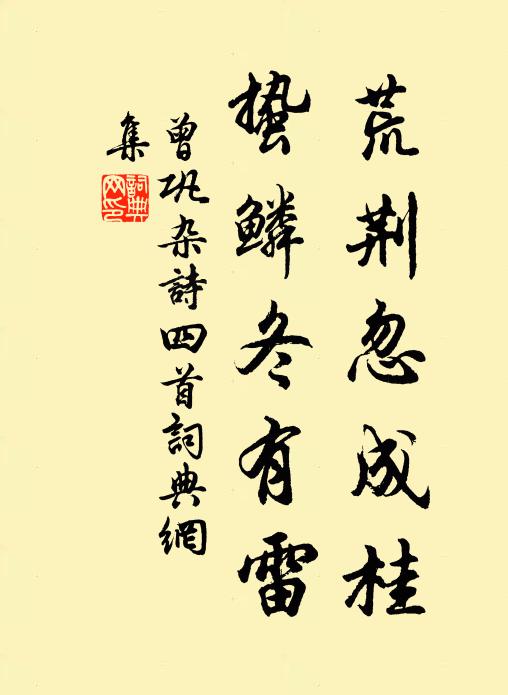 荒荆忽成桂
蛰鳞冬有雷
曾巩杂詩四首詞典網
集
詞典網印